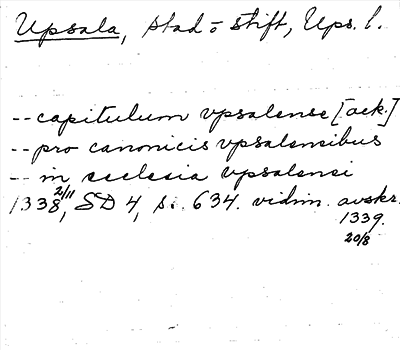 Upsala, stad o stift, Ups. l.
-- capitulum vpsalense [ack.]
-- pro canonicis vpsalensibus
-- in ecclesia vpsalensi
1338 2/11, SD 4, s. 634. vidim. avskr.
1339.
20/8